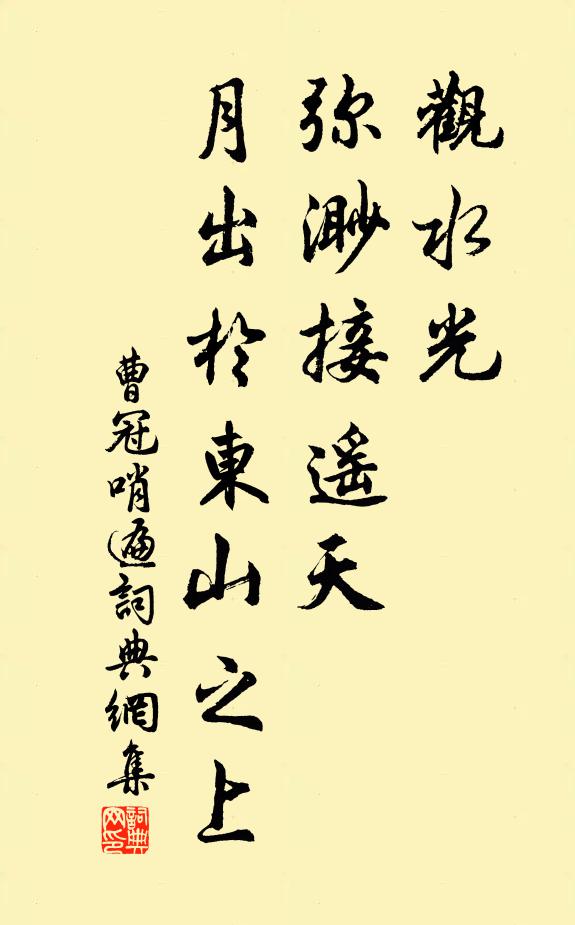 觀水光
弥渺接遥天
月出於東山之上
曹冠哨遍詞典網集
詞典网印